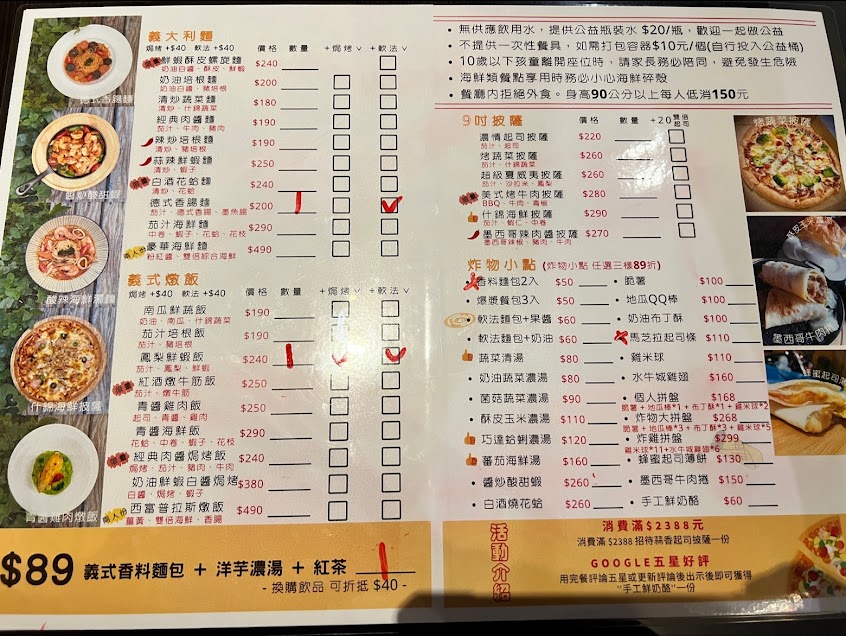 義大利麵
焗烤 +$40 軟法 +$40 價格 數量 +焗烤 ∨ +軟法 ∨
鮮蝦酥皮螺旋麵 $240
奶油白醬、酥皮、鮮蝦
奶油培根麵 $200
奶油白醬、豬培根
清炒蔬菜麵 $180
清炒、什錦蔬菜
經典肉醬麵 $190
茄汁、牛肉、豬肉
辣炒培根麵 $190
清炒、豬培根
蒜辣鮮蝦麵 $250
清炒、蝦子
白酒花蛤麵 $240
清炒、花蛤
德式香腸麵 $200
茄汁、德式香腸、墨魚腸
茄汁海鮮麵 $290
中卷、蝦子、花蛤、花枝
兩人份 豪華海鮮麵 $490
粉紅醬、雙倍綜合海鮮
義式燉飯
焗烤 +$40 軟法 +$40 價格 數量 +焗烤 ∨ +軟法 ∨
南瓜鮮蔬飯 $190
奶油、南瓜、什錦蔬菜
茄汁培根飯 $190
茄汁、豬培根
鳳梨鮮蝦飯 $240
茄汁、鳳梨、鮮蝦
紅酒燉牛肋飯 $250
茄汁、燉牛肋
青醬雞肉飯 $250
起司、青醬、雞肉
青醬海鮮飯 $290
花蛤、中卷、蝦子、花枝
經典肉醬焗烤飯 $240
焗烤、茄汁、豬肉、牛肉
奶油鮮蝦白醬焗烤 $380
白醬、焗烤、蝦子
兩人份 西富普拉斯燉飯 $490
薑黃、雙倍海鮮、香腸
德式香腸麵
酸辣海鮮湯麵
什錦海鮮披薩
青醬雞肉燉飯
$89 義式香料麵包 + 洋芋濃湯 + 紅茶
- 換購飲品 可折抵 $40 -
• 無供應飲用水，提供公益瓶裝水 $20/瓶，歡迎一起做公益
• 不提供一次性餐具，如需打包容器$10元/個(自行投入公益桶)
• 10歲以下孩童離開座位時，請家長務必陪同，避免發生危險
• 海鮮類餐點享用時務必小心海鮮碎殼
• 餐廳內拒絕外食。身高90公分以上每人低消150元
9吋披薩 價格 數量 +20 雙倍起司
濃情起司披薩 $220
茄汁、起司
烤蔬菜披薩 $260
茄汁、什錦蔬菜
超級夏威夷披薩 $260
茄汁、沙拉米、鳳梨
美式烤牛肉披薩 $280
BBQ、牛肉、青椒
什錦海鮮披薩 $290
茄汁、蝦仁、中卷
墨西哥辣肉醬披薩 $270
墨西哥辣椒、豬肉、牛肉
炸物小點 (炸物小點 任選三樣89折)
香料麵包2入 $50
• 爆漿餐包3入 $50
軟法麵包+果醬 $60
• 軟法麵包+奶油 $60
蔬菜清湯 $80
• 奶油蔬菜濃湯 $80
• 菌菇蔬菜濃湯 $90
• 酥皮玉米濃湯 $110
巧達蛤蜊濃湯 $120
蕃茄海鮮湯 $160
• 醬炒酸甜蝦 $260
• 白酒燒花蛤 $260
• 脆薯 $100
• 地瓜QQ棒 $100
• 奶油布丁酥 $100
馬芝拉起司條 $110
• 雞米球 $110
• 水牛城雞翅 $160
• 個人拼盤 $168
脆薯 + 地瓜棒*1 + 布丁酥*1 + 雞米球*2
• 炸物大拼盤 $268
脆薯 + 地瓜棒*3 + 布丁酥*3 + 雞米球*5
• 炸雞拼盤 $299
雞米球*11+水牛城雞翅*6
• 蜂蜜起司薄餅 $130
• 墨西哥牛肉捲 $150
• 手工鮮奶酪 $60
烤蔬菜披薩
墨西哥牛肉捲
蜂蜜起司薄餅
活動介紹
消費滿 $2388元
消費滿 $2388 招待蒜香起司披薩一份
GOOGLE五星好評
用完餐評論五星或更新評論後出示後即可獲得
"手工鮮奶酪"一份